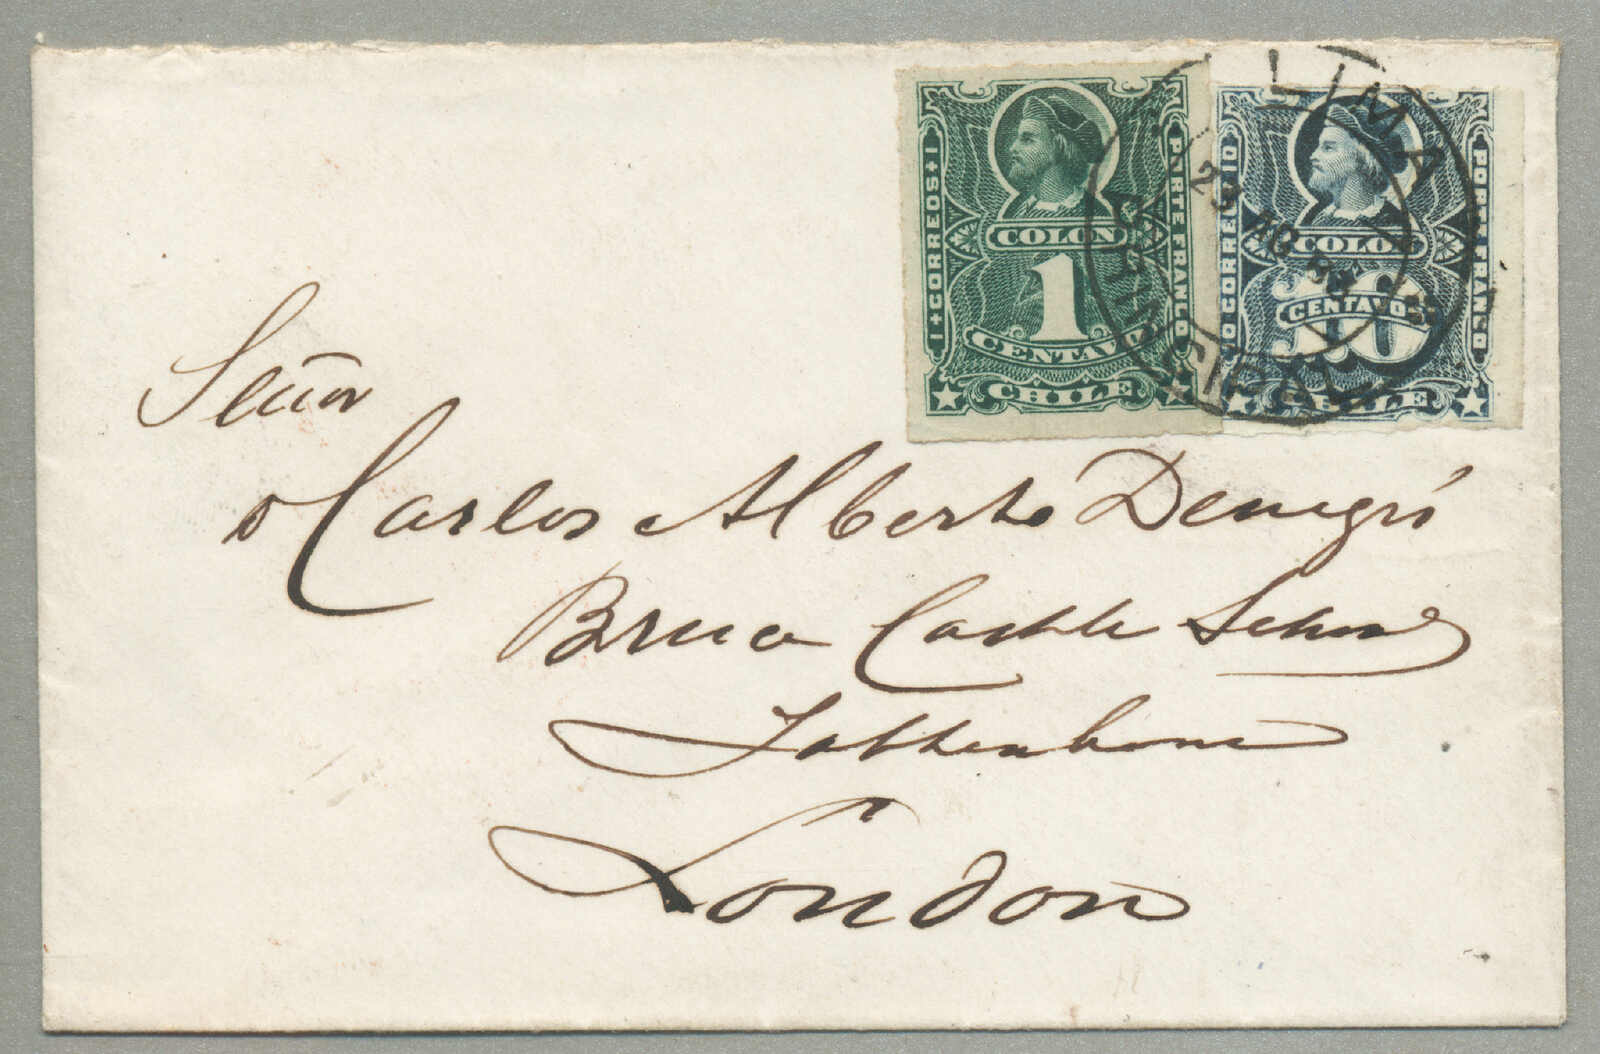 1 CORREOS 1
PORTE FRANCO
COLON
1
CENTAVO
CHILE
10 CORREOS 10
PORTE FRANCO
COLON
10
CENTAVOS
CHILE
LIMA
PRINCIPAL
Señor
Dn Carlos Alberto Denegri
Bruce Castle School
Tottenham
London